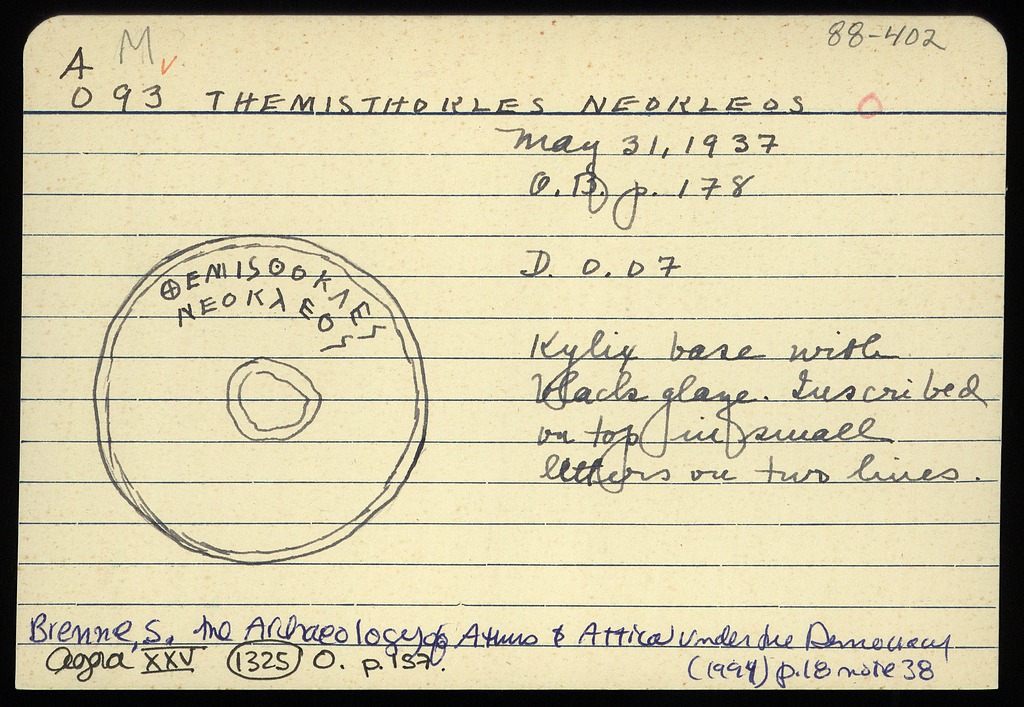 88-402
A M
O 93 THEMISTHOKLES NEOKLEOS O
May 31, 1937
O.B. p. 178
D. 0.07
ΘEMISOOKΛES
NEOKΛEOS
Kylix base with
black glaze. Inscribed
on top in small
letters on two lines.
Brenne, S. The Archaeology of Athens & Attica Under the Democracy
(1994) p.18 note 38
Agora XXV 1325 O. p. 137.